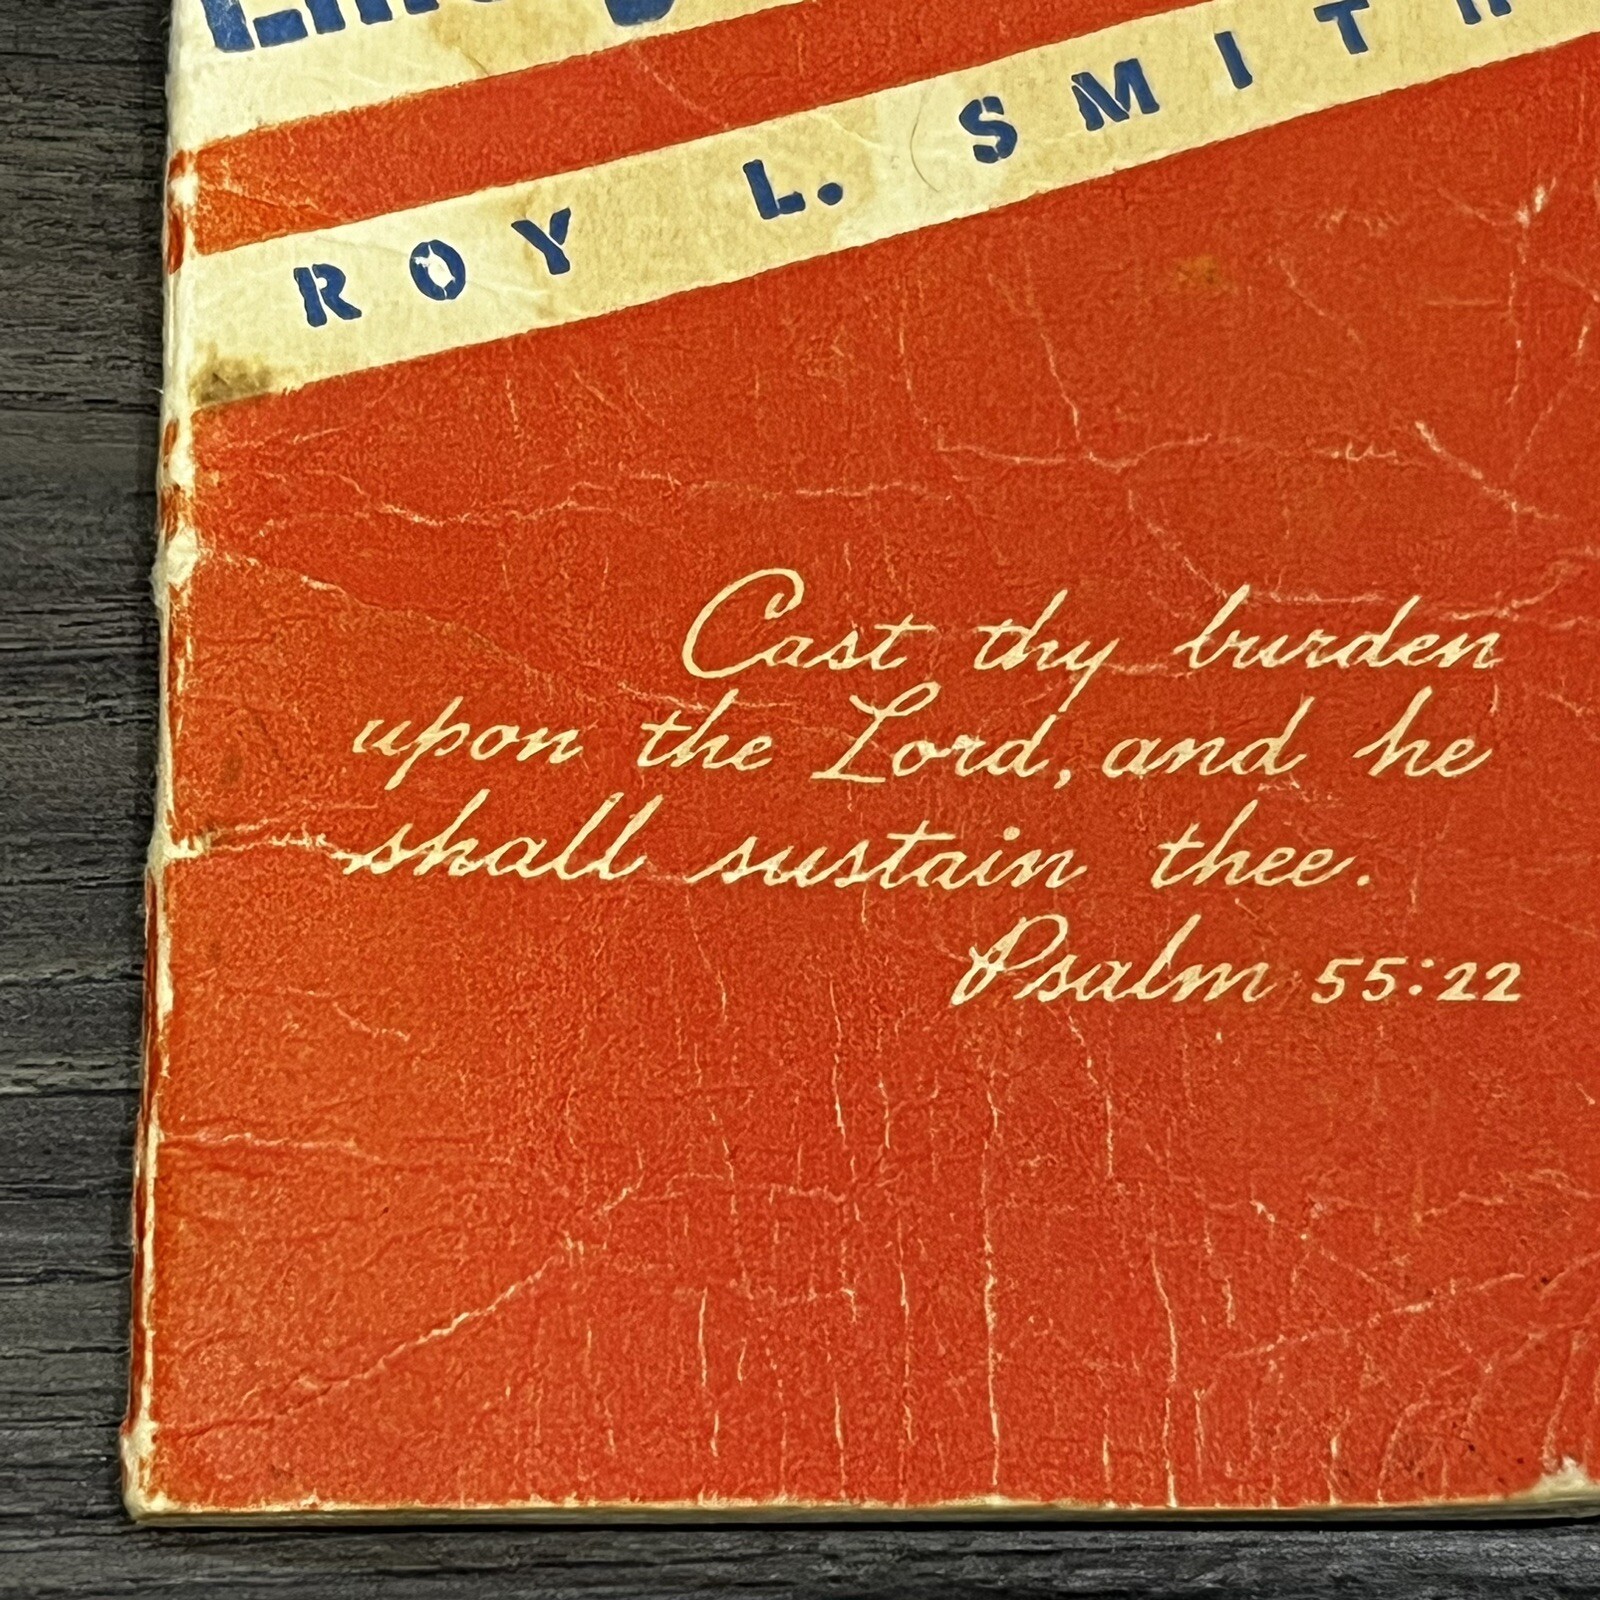 ROY L. SMITH
Cast thy burden
upon the Lord, and he
shall sustain thee.
Psalm 55:22